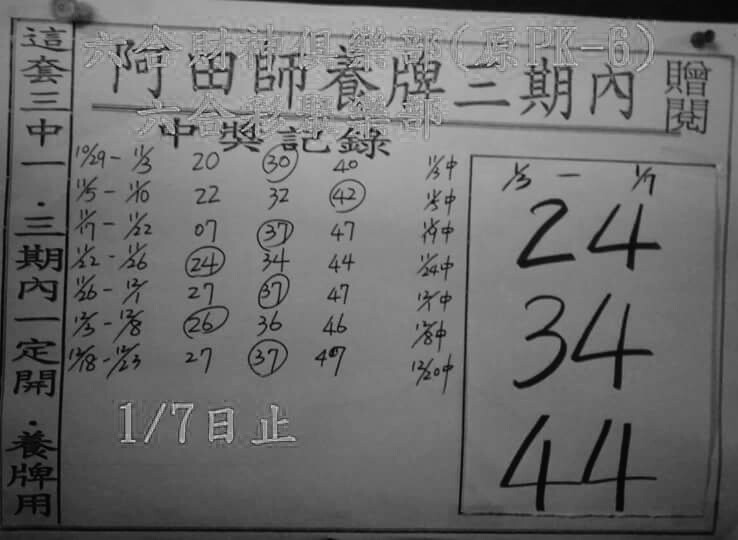 六合財神俱樂部(原PK-6)
阿田師養牌三期內
贈閱
六合彩俱樂部
中獎記錄
這套三中一．三期內一定開．養牌用
10/29 - 11/3 20 30 40 11/3中
11/5 - 11/10 22 32 42 11/5中
11/17 - 11/22 07 37 47 11/19中
11/22 - 11/26 24 34 44 11/24中
11/26 - 12/1 27 37 47 12/1中
12/3 - 12/8 26 36 46 12/8中
12/18 - 12/23 27 37 47 12/20中
1/3 - 1/7
24
34
44
1/7日止